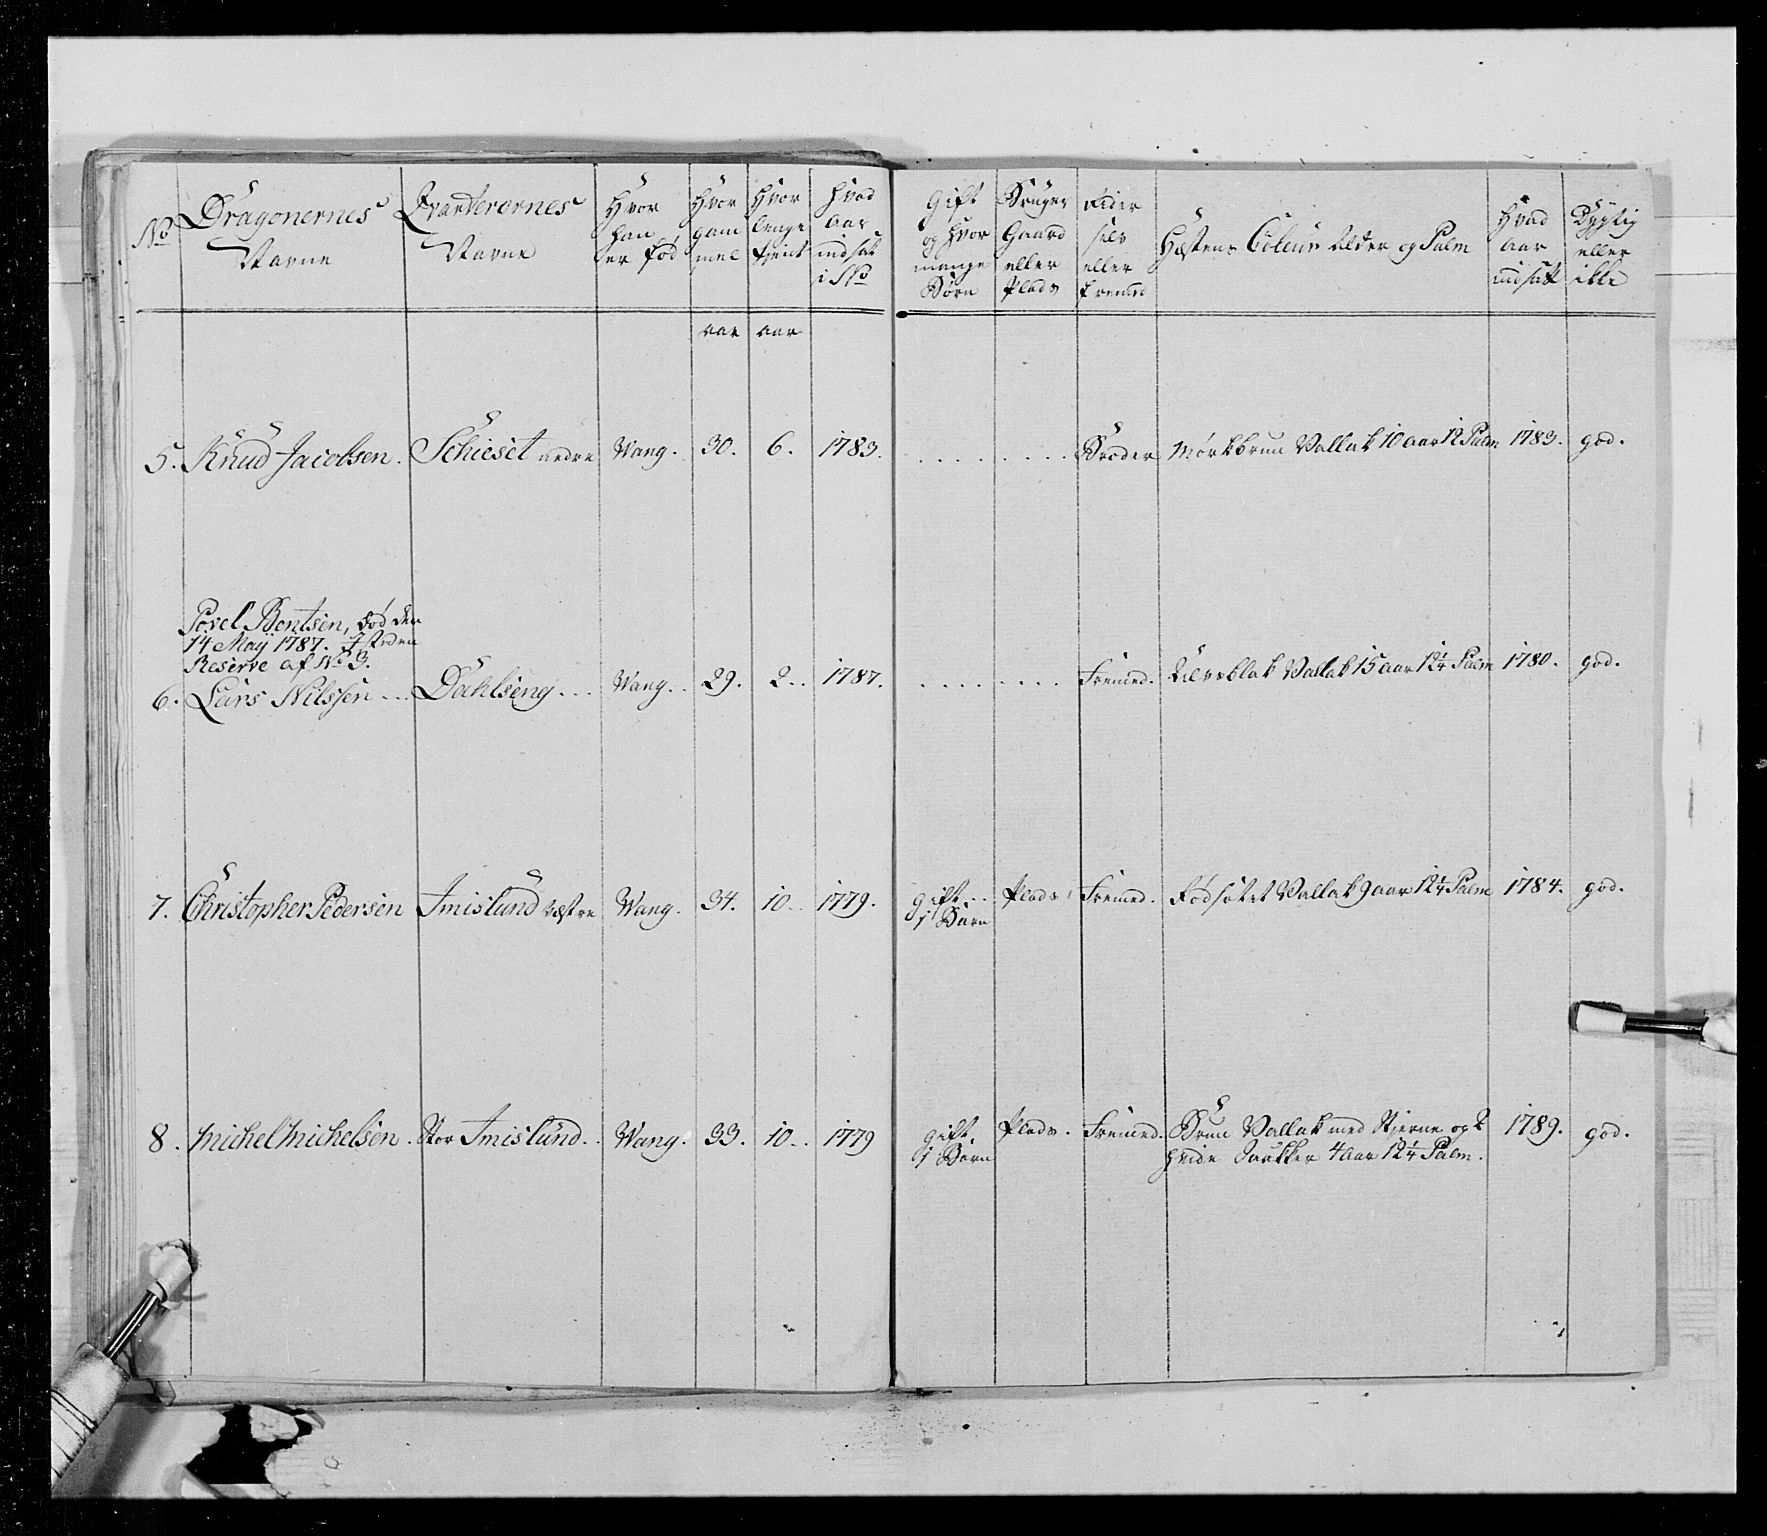 No
Dragonernes
Navne
Qvarterernes
Navne
Hvor
han
er fød
Hvor
gam
mel
Hvor
lenge
tient
Hvad
aar
indsat
i No
Gift
og hvor
mange
Børn
Bruger
Gaard
eller
Plads
Rider
selv
eller
fremed
Hæstens Coleur Alder og Palm
Hvad
aar
indsatt
Dygtig
eller
ikke
aar aar
5. Knud Jacobsen. Schieset nedre Wang. 30. 6. 1783. Broder Mørkbrun Vallak 10 aar 12 Palm 1783. god.
Povel Bentsen, død den
14 May 1787. I steden
Reserve af No 3.
6. Lars Nilssen Dahlseng Wang. 29. 2. 1787. Fremed. Ulvsblak Vallak 15 aar 12 1/4 Palm 1780. god.
7. Christopher Pedersen Imislund Vestre Wang. 34. 10. 1779. gift Plads Fremed. Rødsidet Vallak 9 aar 12 1/4 Palm 1784. god.
1 Barn
8. Michel Michelsen. Stor Imislund. Wang. 33. 10. 1779 gift. Plads. Fremed. Brun Vallak med Stierne og 2 1789. god.
1 Barn hvide 4 aar 12 1/4 Palm.